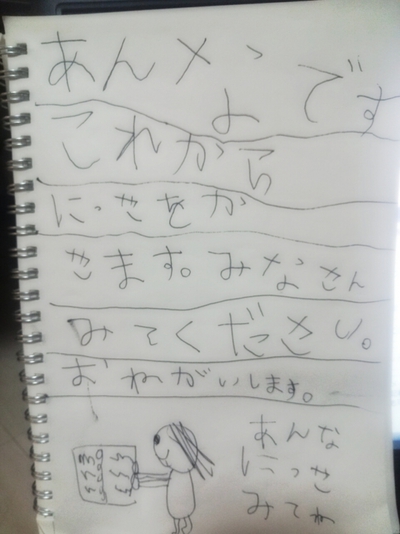 あんなです
これから
にっきをか
きます。みなさん
みてください。
おねがいします。
あんな
にっき
みてね